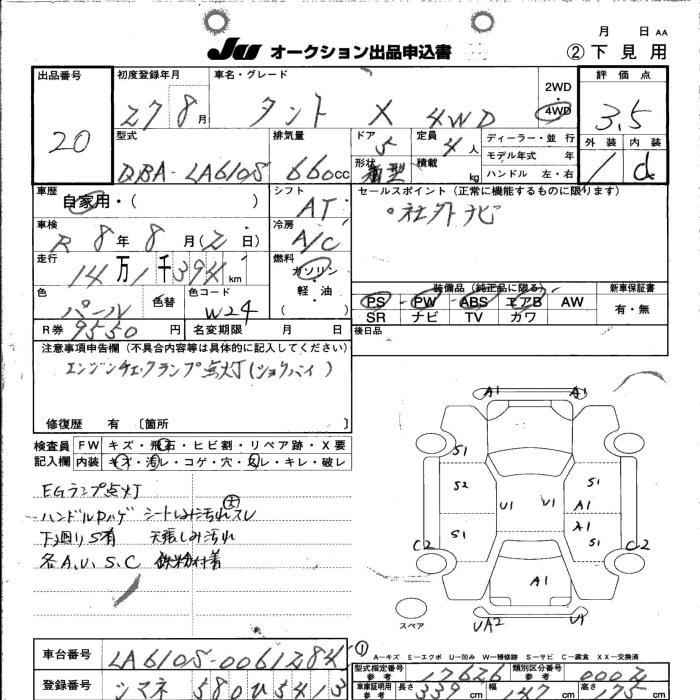 月 日 AA
JU オークション出品申込書 ②下見用
出品番号 初度登録年月 車名・グレード 2WD 4WD 評価点
20 27 8月 タント X 4WD 3.5
型式 排気量 ドア 定員 ディーラー・並行 外装 内装
DBA-LA610S 660cc 5 4人 モデル年式 年 d
形状 箱型 積載 kg ハンドル 左・右
車歴 シフト セールスポイント(正常に機能するものに限ります)
自家用・( ) AT 。社外ナビ
車検 冷房
R 8年 8月(2日) A/C
走行 燃料
14万1千394km ガソリン・軽・油 ( )
装備品(純正品に限る) 新車保証書
色 色替 色コード PS PW ABS エアB AW 有・無
パール W24 SR ナビ TV カワ
R券 9550円 名変期限 月 日 後日品
注意事項申告欄(不具合内容等は具体的に記入してください)
エンジンチェックランプ点灯(ショクバイ)
修復歴 有〔箇所 〕
検査員 FW キズ・飛石・ヒビ割・リペア跡・X要
記入欄 内装 キズ・汚レ・コゲ・穴・スレ・キレ・破レ
EGランプ点灯
ハンドルハゲ シートしみ汚れスレ 大
下廻りS有 天張しみ汚れ
各A、U、S、C 鉄粉付着
A1 A1
S1
S2 U1 U1 S1
A1
S1 A1
S1
C2 C2
A1
スペア UA2 U1
①
A―キズ E―エクボ U―凹み W―補修跡 S―サビ C―腐食 XX―交換済
車台番号 LA610S-0061284
型式指定番号 参考 17626 類別区分番号 参考 0002
登録番号 シマネ 580 ひ 5413
車庫証明用 参考 長さ 339cm 幅 147cm 高さ 175cm